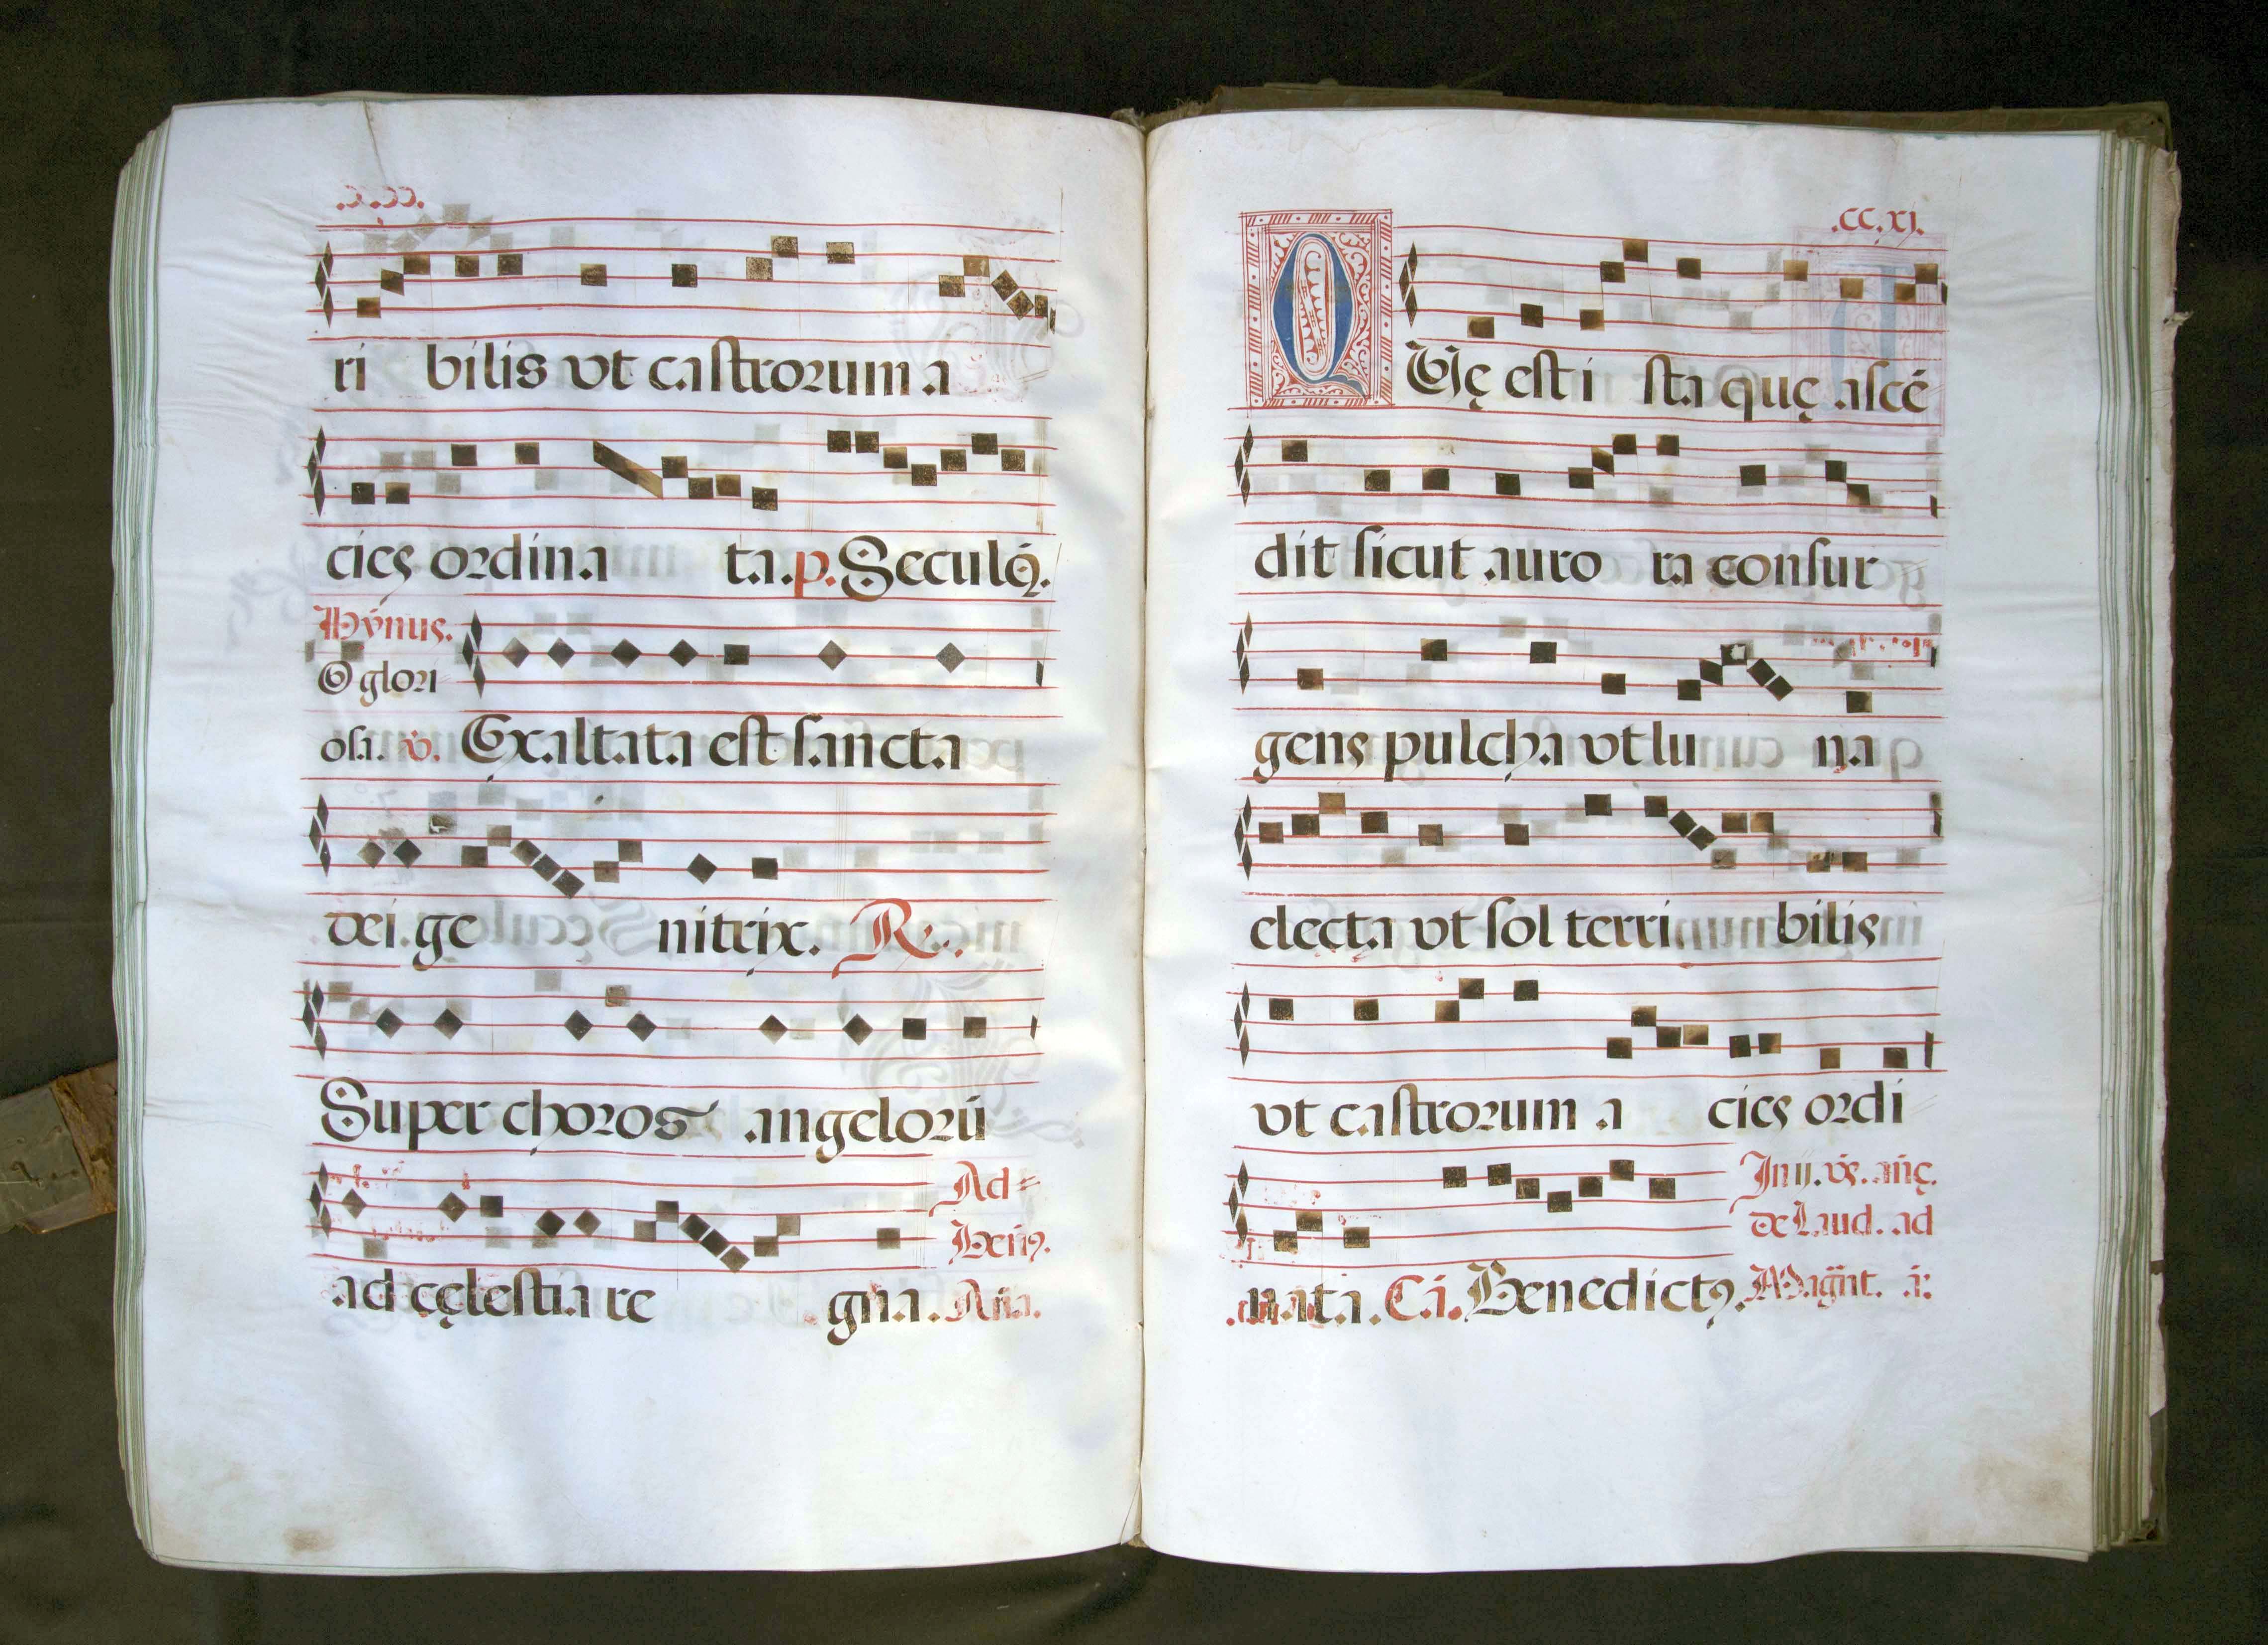 ri bilis vt castrorum a
cies ordina ta. p. Seculoꝝ.
Hẏmnus.
O glori
osa. ℣. Exaltata est sancta
dei ge nitrix. R.
Super choros angelorū
Ad
Benꝰ.
ad cęlestia re gna. Aña.
.CC.XI.
QVę est i sta quę ascē
dit sicut auro ra consur
gens pulchra vt lu na
electa vt sol terri bilis
vt castrorum a cies ordi
In ij. vꝰ. añę.
de Laud. ad
nata. Cā. Benedictꝰ. Magñt. ā: